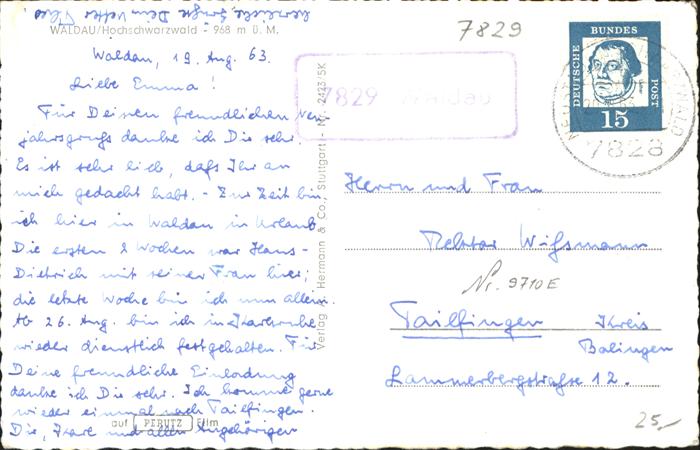 herzliche Grüße Dein Vetter Theo
WALDAU/Hochschwarzwald - 968 m ü. M.
7829
Waldau, 19. Aug. 63.
Liebe Emma!
Für Deinen freundlichen Neu-
jahrsgruß danke ich Dir sehr.
Es ist sehr lieb, daß Ihr an
mich gedacht habt. - Zur Zeit bin
ich hier in Waldau in Urlaub
Die ersten 2 Wochen war Hans-
Dietrich mit seiner Frau hier;
die letzte Woche bin ich nun allein.
Ab 26. Aug. bin ich in Karlsruhe
wieder dienstlich festgehalten. Für
Deine freundliche Einladung
danke ich Dir sehr. Ich komme gerne
wieder einmal nach Tailfingen.
Dir, und allen Angehörigen
auf PERUTZ Film
Verlag Herrmann & Co., Stuttgart - Nr. 2423/5K
7829 Waldau
DEUTSCHE BUNDES POST
15
7828
Herrn und Frau
Rektor Wißmann
Nr. 9710 E
Tailfingen Kreis
Balingen
Lammerbergstraße 12.
25,-